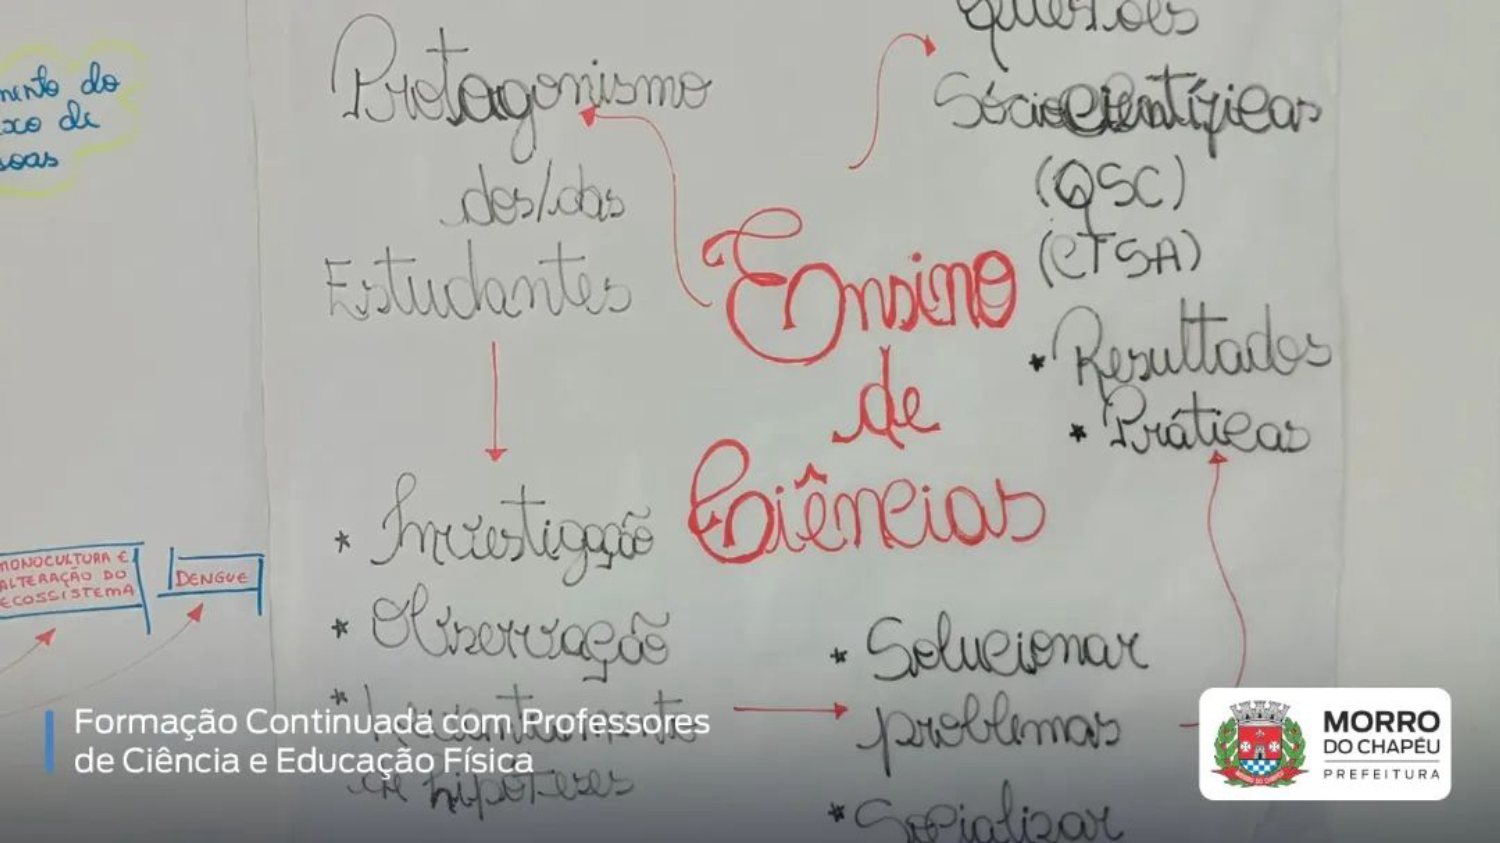 mento do
xo de
soas
MONOCULTURA E
ALTERAÇÃO DO
ECOSSISTEMA
DENGUE
Protagonismo
dos/das
Estudantes
* Investigação
* Observação
* Levantamento
de hipóteses
Ensino
de
Ciências
questões
Sóciocientíficas
(QSC)
(CTSA)
* Resultados
* Práticas
* Solucionar
problemas
* Socializar
Formação Continuada com Professores
de Ciência e Educação Física
MORRO
DO CHAPÉU
PREFEITURA